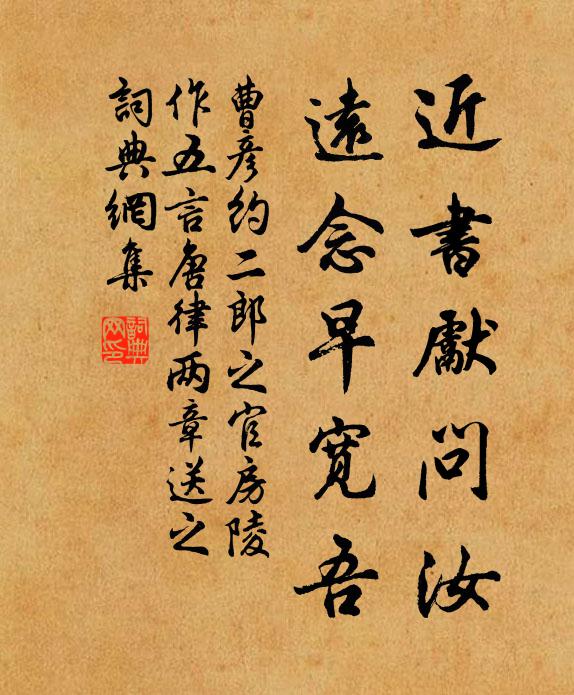 近書獻問汝
遠念早寬吾
曹彦約二郎之官房陵
作五言唐律两章送之
詞典網集
詞典網印